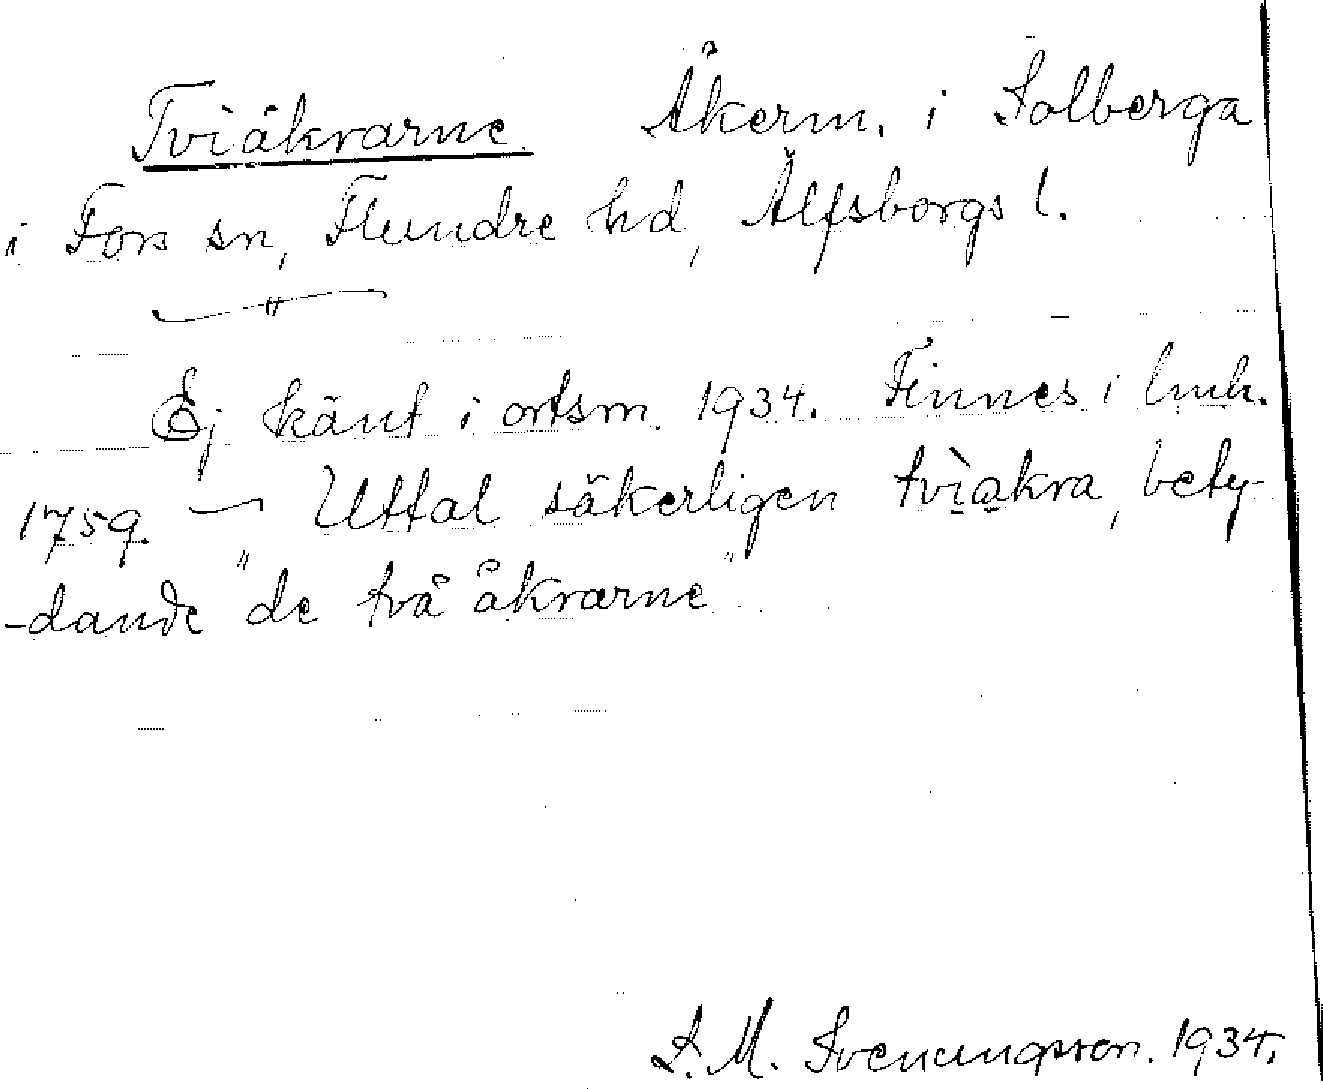 Tviåkrarne. Åkerm. i Solberga
i Fors sn, Flundre hd, Älfsborgs l.
"
Ej känt i ortsm. 1934. Finnes i lmh.
1759. — Uttal säkerligen tvìakra, bety-
-dande "de två åkrarne"
S. M. Svenungsson. 1934.